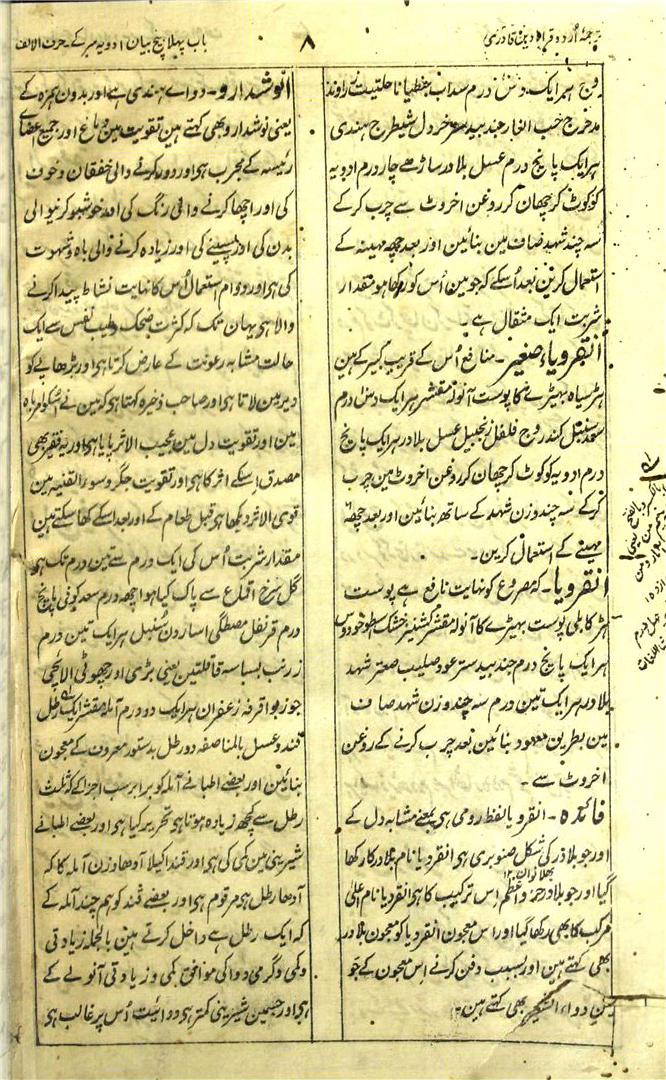 ترجمۂ اردو قرابادین قادری
۸
باب پہلا بیچ بیان ادویہ مرکبہ حرف الالف
وج ہر ایک دس درم سداب جنطیانا حلتیت زراوند
مدحرج حب الغار جندبیدستر خردل شیطرج ہندی
ہر ایک پانچ درم عسل بلادر ساڑھے چار درم ادویہ
کو کوٹ کر چھان کر روغن اخروٹ سے چرب کرکے
سہ چند شہد صاف مین بنائین اور بعد چھہ مہینہ کے
استعمال کرین بعد اسکے کہ جو مین اُس کو رکھا ہو مقدار
شربت ایک مثقال ہے
انقرویاء صغیر۔ منافع اُس کے قریب کبیر کے ہین
ہڑ سیاہ بہیڑے کا پوست آنولہ مقشر ہر ایک دس درم
سعد سنبل کندر وج فلفل زنجبیل عسل بلادر ہر ایک پانچ
درم ادویہ کو کوٹ کر چھان کر روغن اخروٹ مین چرب
کرکے سہ چند وزن شہد کے ساتھ بنائین اور بعد چھہ
مہینے کے استعمال کرین۔
انقرویا۔ کہ مصروع کو نہایت نافع ہے پوست
ہڑ کابلی پوست بہیڑے کا آنولہ مقشر کشنیز خشک اسطوخودوس
ہر ایک پانچ درم جندبیدستر عود صلیب صعتر شہد
بلادر ہر ایک تین درم سہ چند وزن شہد صاف
مین بطریق معہود بنائین بعد چرب کرنے کے روغن
اخروٹ سے۔
فائدہ۔ انقرویا لفظ رومی ہی بمعنے مشابہ دل کے
اور جو بلادر کی شکل صنوبری ہی انقرویا نام بلادر کا رکھا
گیا اور جو بلادر جزو اعظم اس ترکیب کا ہی انقرویا نام اعلیٰ
مرکب کا بھی رکھا گیا اور اس معجون انقرویا کو معجون بلادر
بھی کہتے ہین اور بسبب دفن کرنے اس معجون کے جو
مین دواء الشعیر بھی کہتے ہین ۱۲
انوشدارو۔ دواے ہندی ہے اور بدون ہمزہ کے
یعنی نوشدارو بھی کہتے ہین تقویت مین دماغ اور جمیع اعضاے
رئیسہ کے مجرب ہی اور دور کرنے والی خفقان و خوف
کی اور اچھا کرنے والی رنگ کی اور خوشبو کرنیوالی
بدن کی اور پسینے کی اور زیادہ کرنے والی باہ و شہوت
کی ہی اور دوام استعمال اُس کا نہایت نشاط پیدا کرنے
والا ہی یہان تک کہ کثرت ضحک و طیب نفس سے ایک
حالت مشابہ رعونت کے عارض کرتا ہی اور بڑھاپے کو
دیر مین لاتا ہی اور صاحب ذخیرہ کہتا ہی کہ مین نے اسکو امر باہ
مین اور تقویت دل مین عجیب الاثر پایا ہی اور یہ فقیر بھی
مصدق اسکے اثر کا ہی اور تقویت جگر و سوء القنیہ مین
قوی الاثر دیکھا ہی قبل طعام کے اور بعد اسکے کھا سکتے ہین
مقدار شربت اُس کی ایک درم سے تین درم تک ہی
گل سرخ اقماع سے پاک کیا ہوا چھہ درم سعد کوفی پانچ
درم قرنفل مصطگی اسارون سنبل ہر ایک تین درم
زرنب بسباسہ قاقلتین یعنی بڑی اور چھوٹی الائچی
جوزبوا قرفہ زعفران ہر ایک دو درم آملہ مقشر ایک رطل
قند و عسل بالمناصفہ دو رطل بدستور معروف کے معجون
بنائین اور بعضے اطبا نے آملہ کو برابر سب اجزا کے کہ ثلث
رطل سے کچھ زیادہ ہوتا ہی تحریر کیا ہی اور بعضے اطبا نے
شیرینی مین کمی کی ہی اور قند اکیلا آدھا وزن آملہ کا کہ
آدھا رطل ہی مرقوم ہی اور بعضے قند کو ہم چند آملہ کے
کہ ایک رطل ہے داخل کرتے ہین بالجملہ زیادتی
و کمی و گرمی دوا کی موافق کمی و زیادتی آنولے کے
ہی اور جسمین شیرینی کمتر ہی دوائیت اُس پر غالب ہی